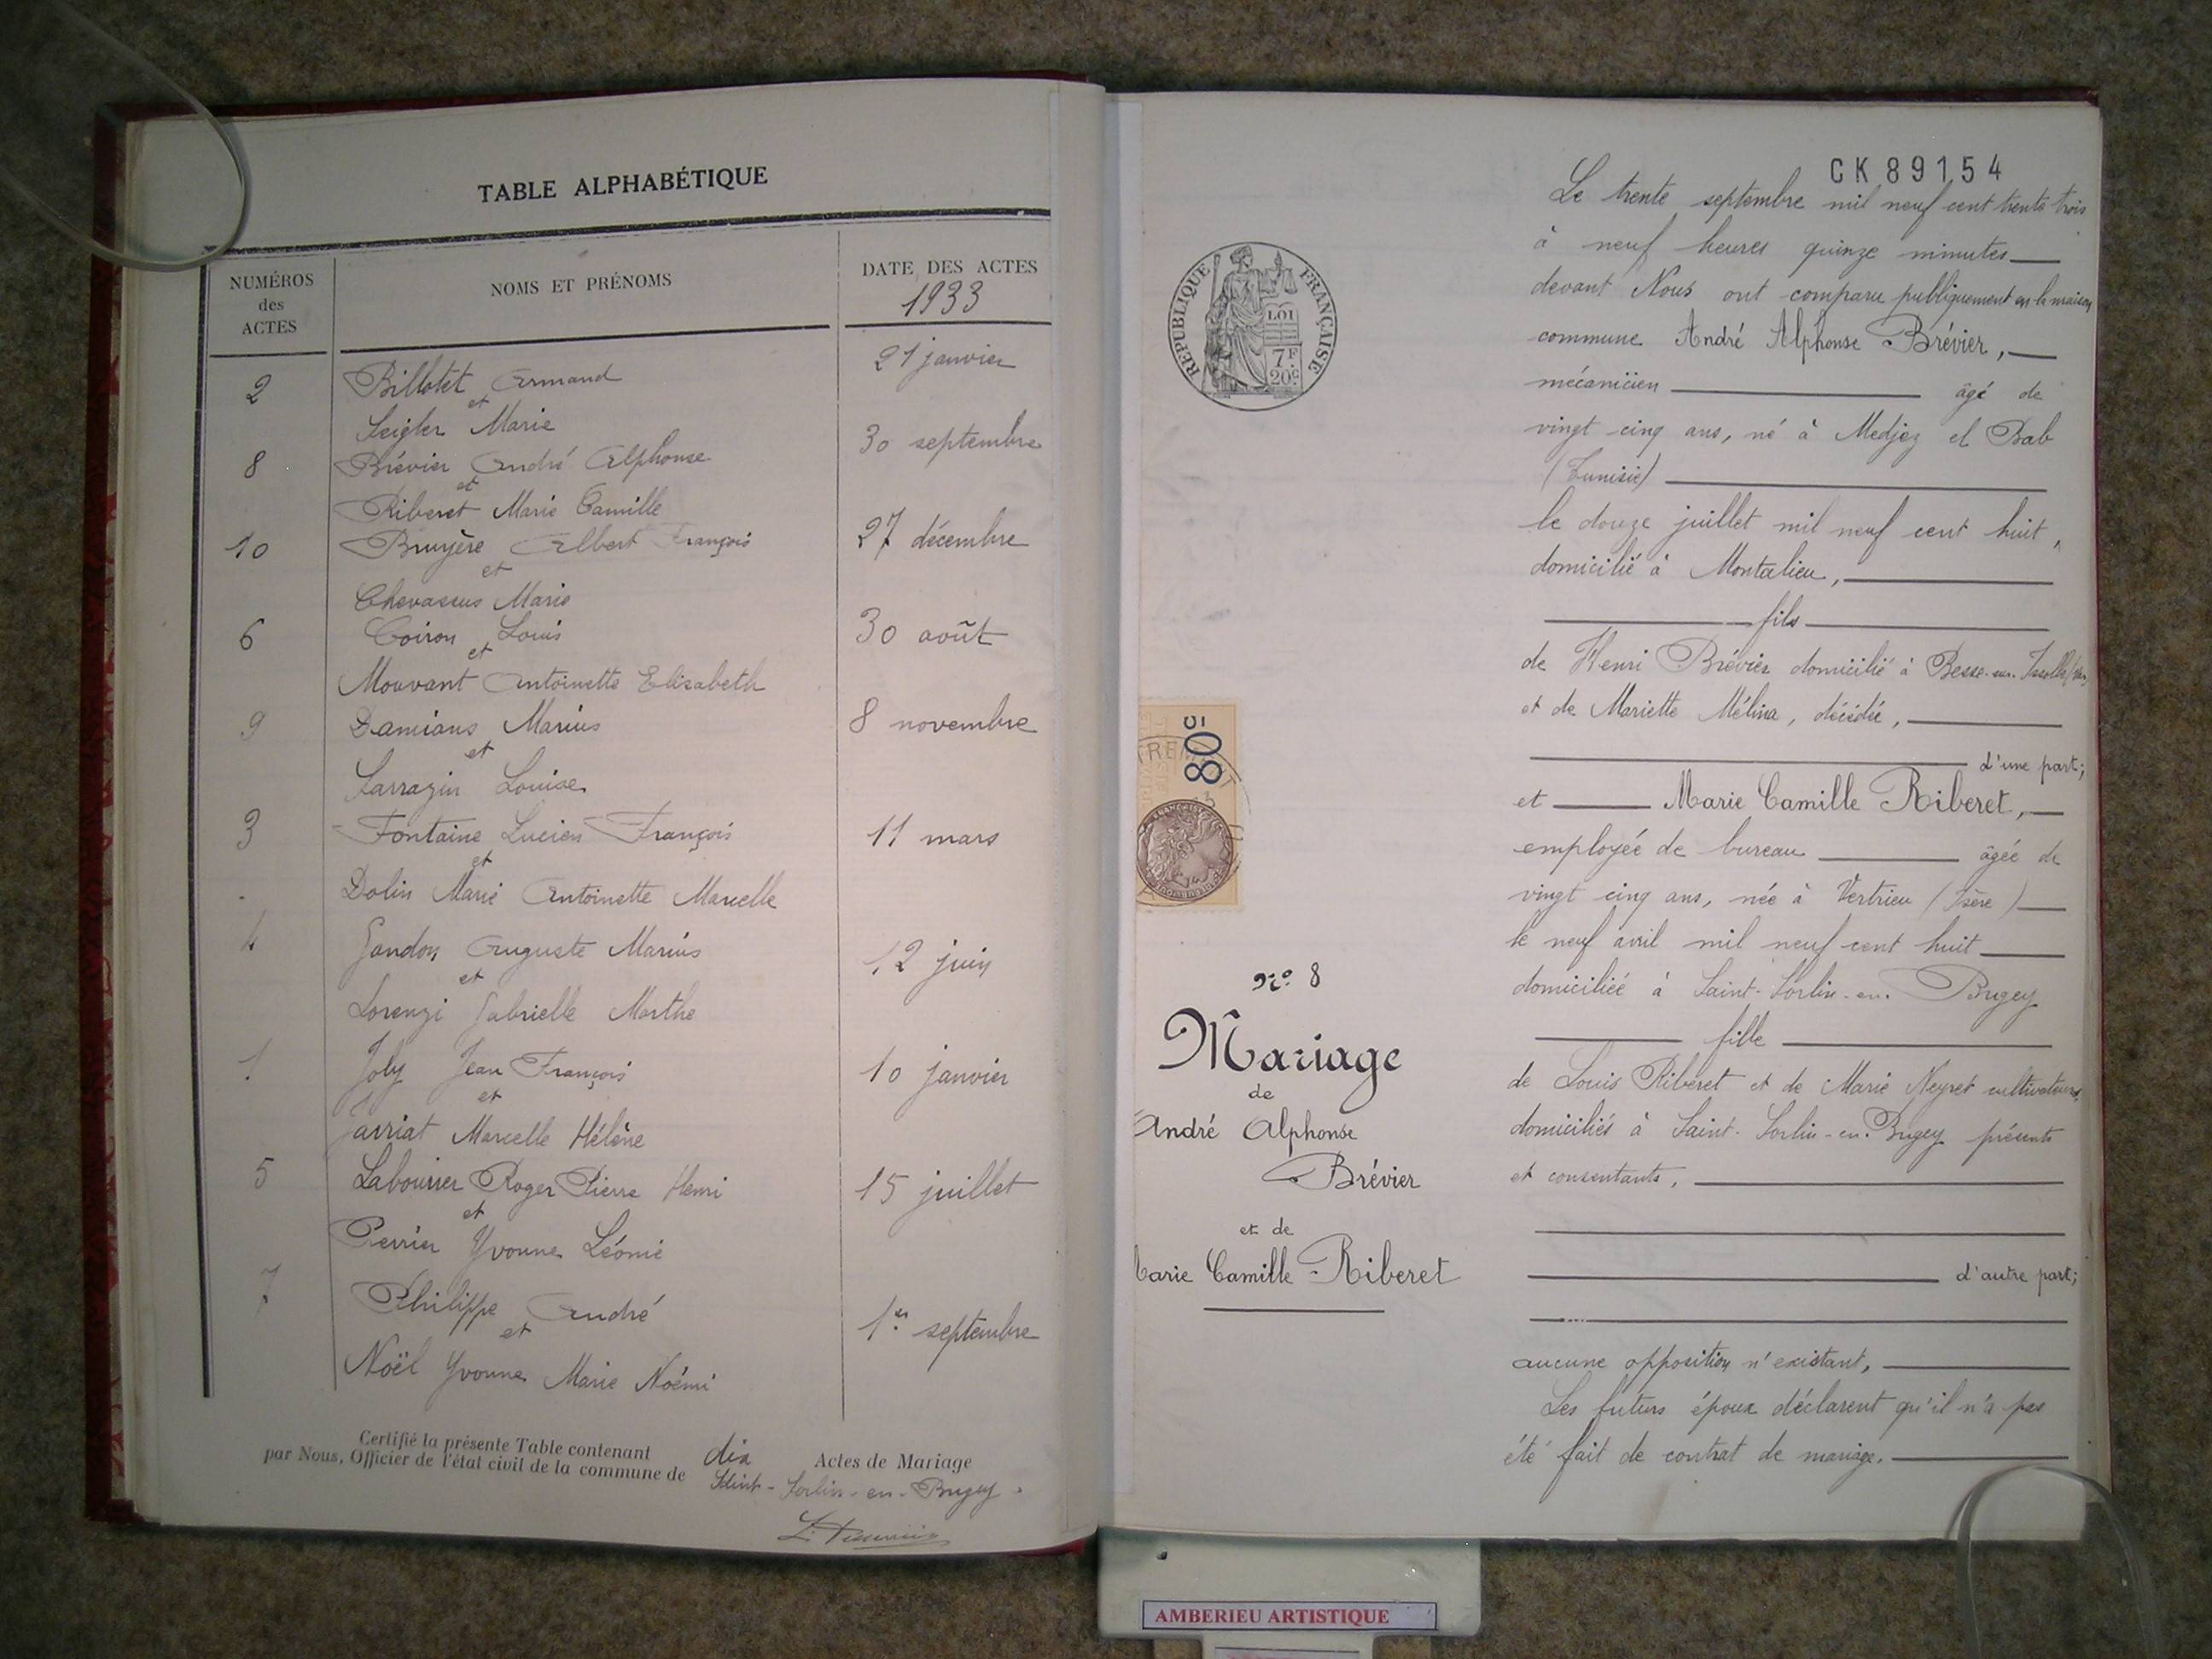 TABLE ALPHABÉTIQUE
NUMÉROS
des
ACTES
NOMS ET PRÉNOMS
DATE DES ACTES
1933
2 Billotet Armand 21 janvier
et
Seigler Marie
8 Brévier André Alphonse 30 septembre
et
Riberet Marie Camille
10 Bruyère Albert François 27 décembre
et
Chevassus Marie
6 Coiron Louis 30 août
et
Mouvant Antoinette Elisabeth
9 Damians Marius 8 novembre
et
Sarrazin Louise
3 Fontaine Lucien François 11 mars
et
Dolin Marie Antoinette Marcelle
4 Gandon Auguste Marius 12 juin
et
Lorenzi Gabrielle Marthe
1 Joly Jean François 10 janvier
et
Jarriat Marcelle Hélène
5 Labourier Roger Pierre Henri 15 juillet
et
Perrier Yvonne Léonie
7 Philippe André 1er septembre
et
Noël Yvonne Marie Noémi
Certifié la présente Table contenant dix Actes de Mariage
par Nous, Officier de l'état civil de la commune de Saint-Sorlin-en-Bugey.
RÉPUBLIQUE FRANÇAISE
LOI
7F
20c
80c
No 8
Mariage
de
André Alphonse
Brévier
et de
Marie Camille Riberet
CK89154
Le trente septembre mil neuf cent trente trois
à neuf heures quinze minutes
devant Nous ont comparu publiquement en la maison
commune André Alphonse Brévier,
mécanicien âgé de
vingt cinq ans, né à Medjez el Bab
(Tunisie)
le douze juillet mil neuf cent huit,
domicilié à Montalieu,
fils
de Henri Brévier domicilié à Besse-sur-Issolle (Var)
et de Mariette Mélina, décédée,
d'une part;
et Marie Camille Riberet,
employée de bureau âgée de
vingt cinq ans, née à Vertrieu (Isère)
le neuf avril mil neuf cent huit
domiciliée à Saint-Sorlin-en-Bugey
fille
de Louis Riberet et de Marie Neyret cultivateurs,
domiciliés à Saint-Sorlin-en-Bugey présents
et consentants,
d'autre part;
aucune opposition n'existant,
Les futurs époux déclarent qu'il n'a pas
été fait de contrat de mariage.
AMBERIEU ARTISTIQUE